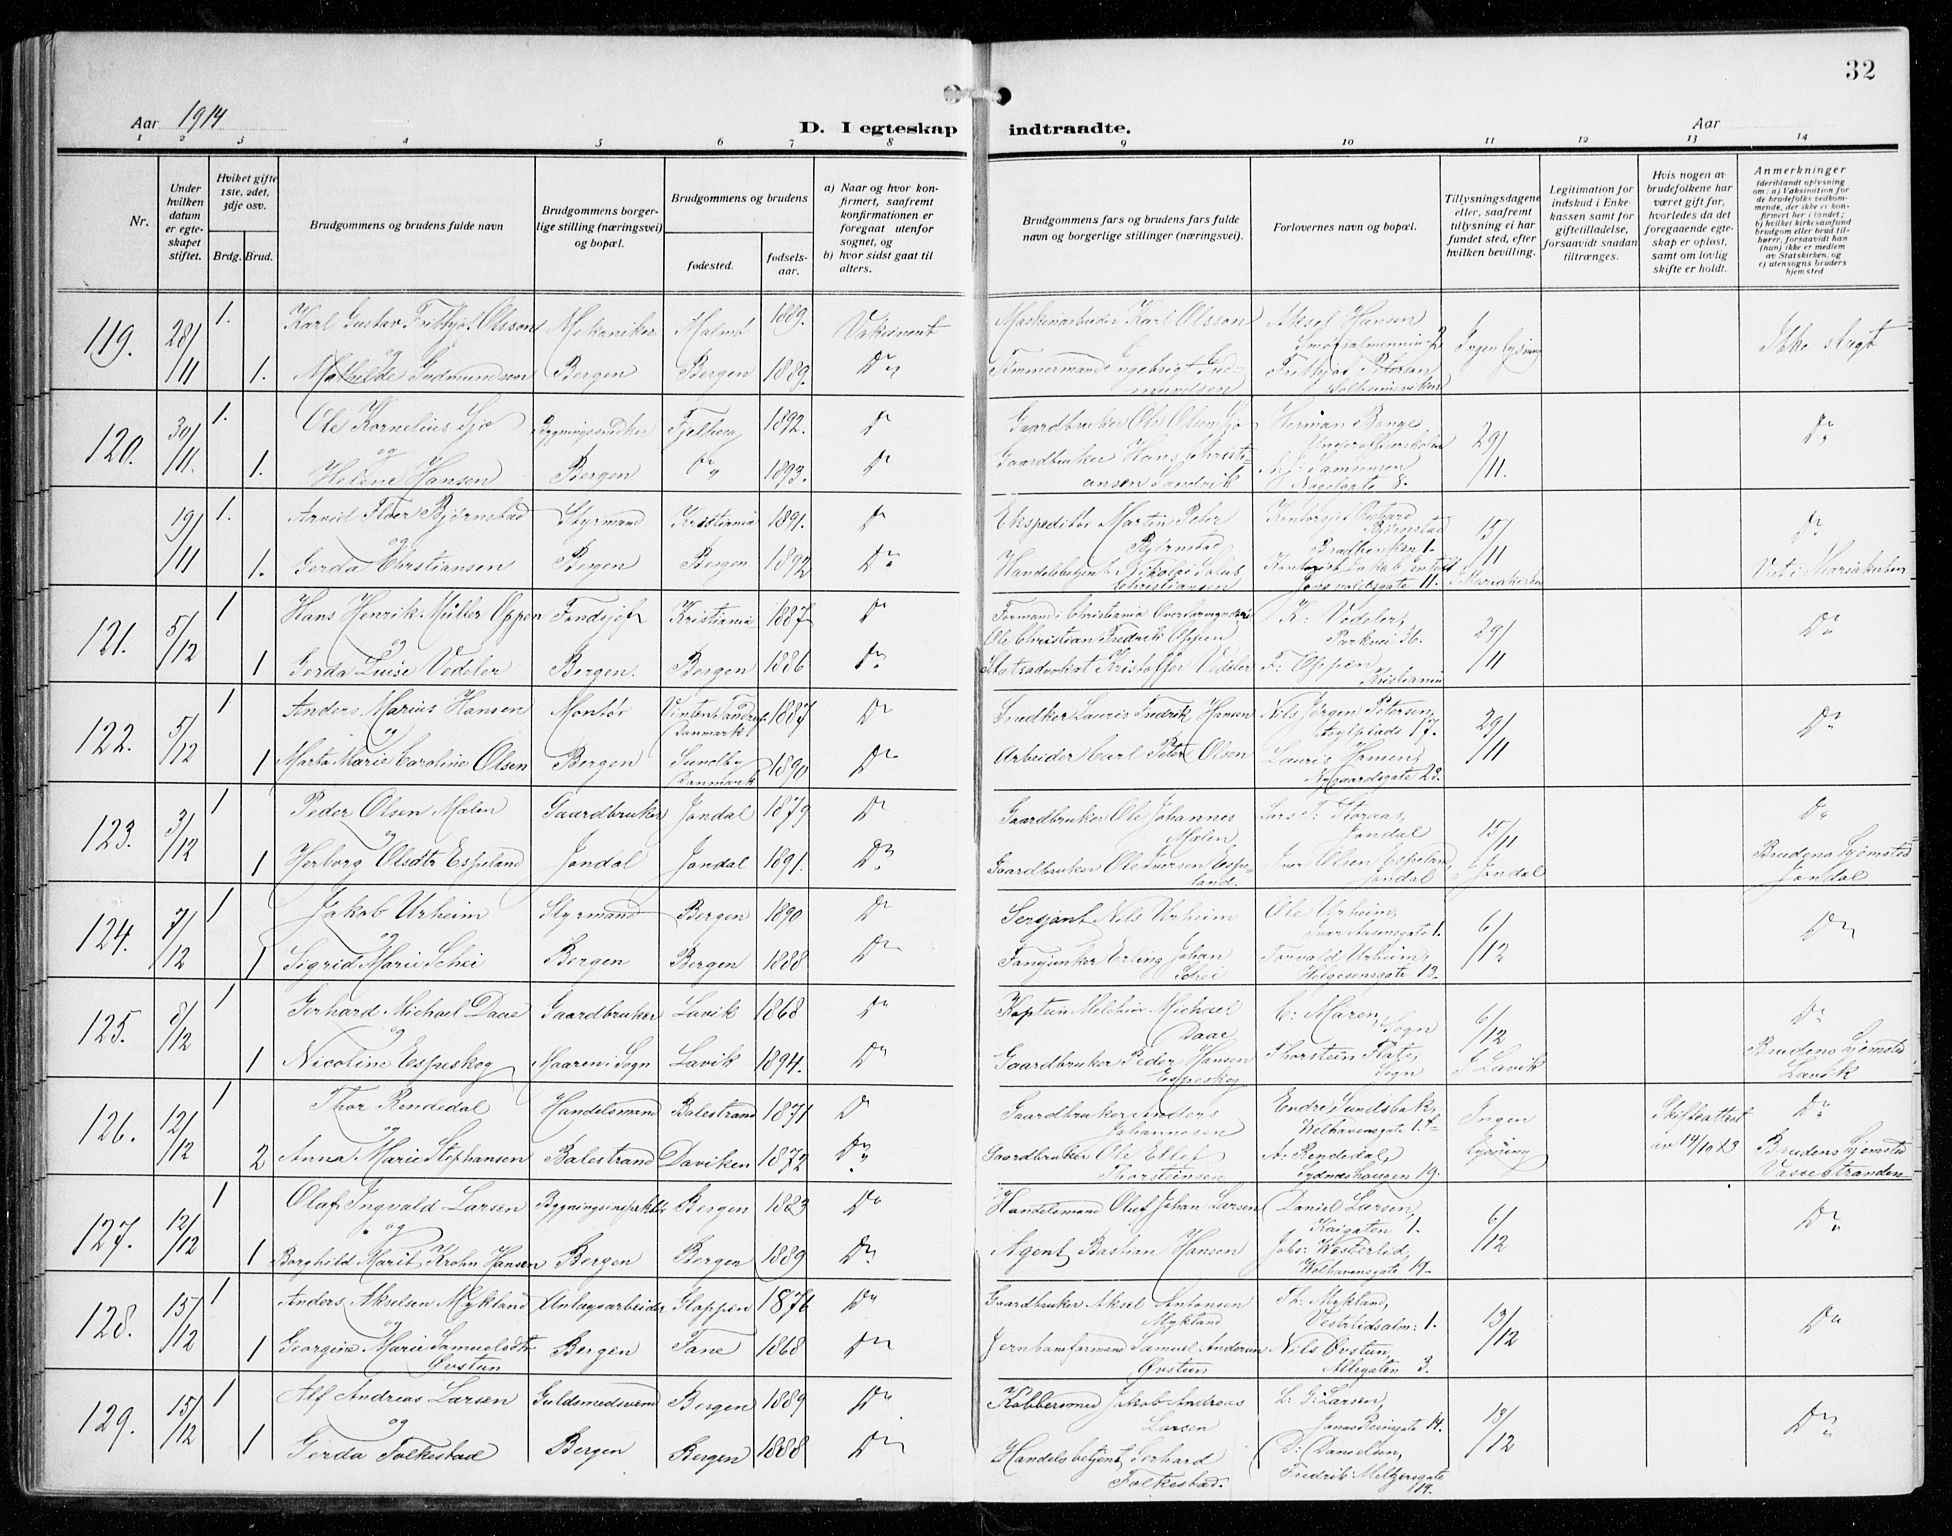 32
Aar 1914
D. I egteskap indtraadte.
Aar
1 2 3 4 5 6 7 8 9 10 11 12 13 14
Nr.
Under hvilken datum er egteskapet stiftet.
Hviket gifte 1ste, 2det, 3dje osv.
Brdg. Brud.
Brudgommens og brudens fulde navn
Brudgommens borgerlige stilling (næringsvei) og bopæl.
Brudgommens og brudens
fødested.
fødselsaar.
a) Naar og hvor konfirmert, saafremt konfirmationen er foregaat utenfor sognet, og
b) hvor sidst gaat til alters.
Brudgommens fars og brudens fars fulde navn og borgerlige stillinger (næringsvei).
Forlovernes navn og bopæl.
Tillysningsdagene eller, saafremt tillysning ei har fundet sted, efter hvilken bevilling.
Legitimation for indskud i Enkekassen samt for giftetilladelse, forsaavidt saadan tiltrænges.
Hvis nogen av brudefolkene har været gift før, hvorledes da det foregaaende egteskap er opløst, samt om lovlig skifte er holdt.
Anmerkninger (deriblandt oplysning om: a) Vaksination for de brudefolks vedkommende, der ikke er konfirmert her i landet; b) hvilket kirkesamfund brudgom eller brud tilhører, forsaavidt han (hun) ikke er medlem av Statskirken, og c) utensogns bruders hjemsted
119. 28/11 1. Karl Gustav Frithjof Olsson Mekaniker Malmö 1889. Vaksinert Maskinarbeider Karl Olsson Aksel Hansen Smørsalmenning 2 Ingen lysning Ikke slegt
og
1. Mathilde Gudmundson Bergen Bergen 1889. Do Tømmermand Ingebrigt Gudmundsen Frithjof Petersen Solheimsviken
120. 30/11. 1. Ole Kornelius Sjo Bygningssnedker Fjelberg 1892. Do Gaardbruker Ole Olsen Sjo Herman Berge Underofficerskolen 29/11. Do
og
1. Helene Hansen Bergen Do 1893. Do Gaardbruker Hans Christiansen Sandvik Samsonsen Nygelgate 8.
19/11 1. Arvid Floer Bjørnstad Styrmand Kristiania 1891. Do Ekspeditør Martin Peter Bjørnstad Bjørnstad Bradbenken 1. 15/11 Do
og
1. Gerda Christiansen Bergen Bergen 1892 Do Handelsbetjent Nikolai Christiansen gate 11. i Mariakirken Viet i Mariakirken
121. 5/12 1 Hans Henrik Müller Oppen Fondsjef Kristiania 1887 Do Formand i Christiania Overformynderi Ole Christian Fredrik Oppen K: Vedeler, Parkvei 36. 29/11 Do
og
1 Gerda Luise Vedeler Bergen. Bergen 1886 Do Statsadvokat Kristoffer Vedeler F: Oppen Kristiania
122. 5/12 1 Anders Marius Hansen Montør Danmark 1887 Do Snedker Lauris Fredrik Hansen Nils Jørgen Petersen, 17. 29/11 Do
og
1 Marta Marie Caroline Olsen Bergen Sundby Danmark 1890 Do Arbeider Carl Peter Olsen Lauris Hansen, Nygaardsgate 23.
123. 3/12 1 Peder Olsen Mælen Gaardbruker Jondal 1879 Do Gaardbruker Ole Johannes Mælen Lars T. Storaas, Jondal 15/11 Do
og
1 Herborg Olsdtr Espeland Jondal Jondal 1891. Do Gaardbruker Ole Iversen Espeland. Iver Olsen Espeland, Jondal i Jondal Brudens hjemsted Jondal
124. 7/12 1 Jakob Urheim Styrmand Bergen 1890 Do Sersjant Nils Urheim Ole Urheim, Ivar Aasensgate 1. 6/12 Do
og
1 Sigrid Marie Schei Bergen Bergen 1888 Do Fanejunker Erling Johan Schei Torvald Urheim, Helgesensgate 13.
125. 8/12 1 Gerhard Michael Daae Gaardbruker Lavik 1868 Do Kaptein Melchior Michael Daae C: Maren, Sogn 6/12 Do
og
1 Nicoline Espeskog Maaren i Sogn Lavik 1894. Do Gaardbruker Peder Hansen Espeskog Thorstein Sogn i Lavik Brudens hjemsted Lavik
126. 12/12 1 Thor Rendedal Handelsmand Balestrand 1871 Do Gaardbruker Anders Johannesen Endre Sundsbak, Welhavensgate Ingen lysning Skifteattest av 14/10 13 Do
og
2 Anna Marie Stephansen Balestrand Daviken 1872 Do Gaardbruker Ole Thorsteinsen A: Rendedal, Sydneshaugen 19. Brudens hjemsted Vassestranden
127. 12/12 1 Olaf Ingvald Larsen Bygningsinspektør Bergen 1883 Do Handelsmand Oluf Johan Larsen Daniel Larsen, Kaigaten 1. 6/12 Do
og
1 Borghild Marit Krohn Hansen Bergen Bergen 1889 Do Agent Bastian Hansen Johs: Westerlid, Welhavensgate 19.
128. 15/12 1 Anders Akselsen Mykland Anlægsarbeider Gloppen 1876 Do Gaardbruker Aksel Antonsen Mykland Th: Mykland, Vestrlidsalm: 1. 13/12 Do
og
1 Georgine Marie Samuelsdtr Øvstun Bergen Fane 1868 Do Jernbaneformand Samuel Andersen Øvstun Nils Øvstun, Allegaten 3.
129. 15/12 1 Alf Andreas Larsen Guldsmedsvend Bergen 1889 Do Kobbersmed Jakob Andreas Larsen L: G: Larsen, Jonas Reinsgate 14. 13/12 Do
og
1 Gerda Folkestad Bergen Bergen 1888 Do Handelsbetjent Gerhard Folkestad. D: Danielsen, Fredrik Meltzersgate 119.